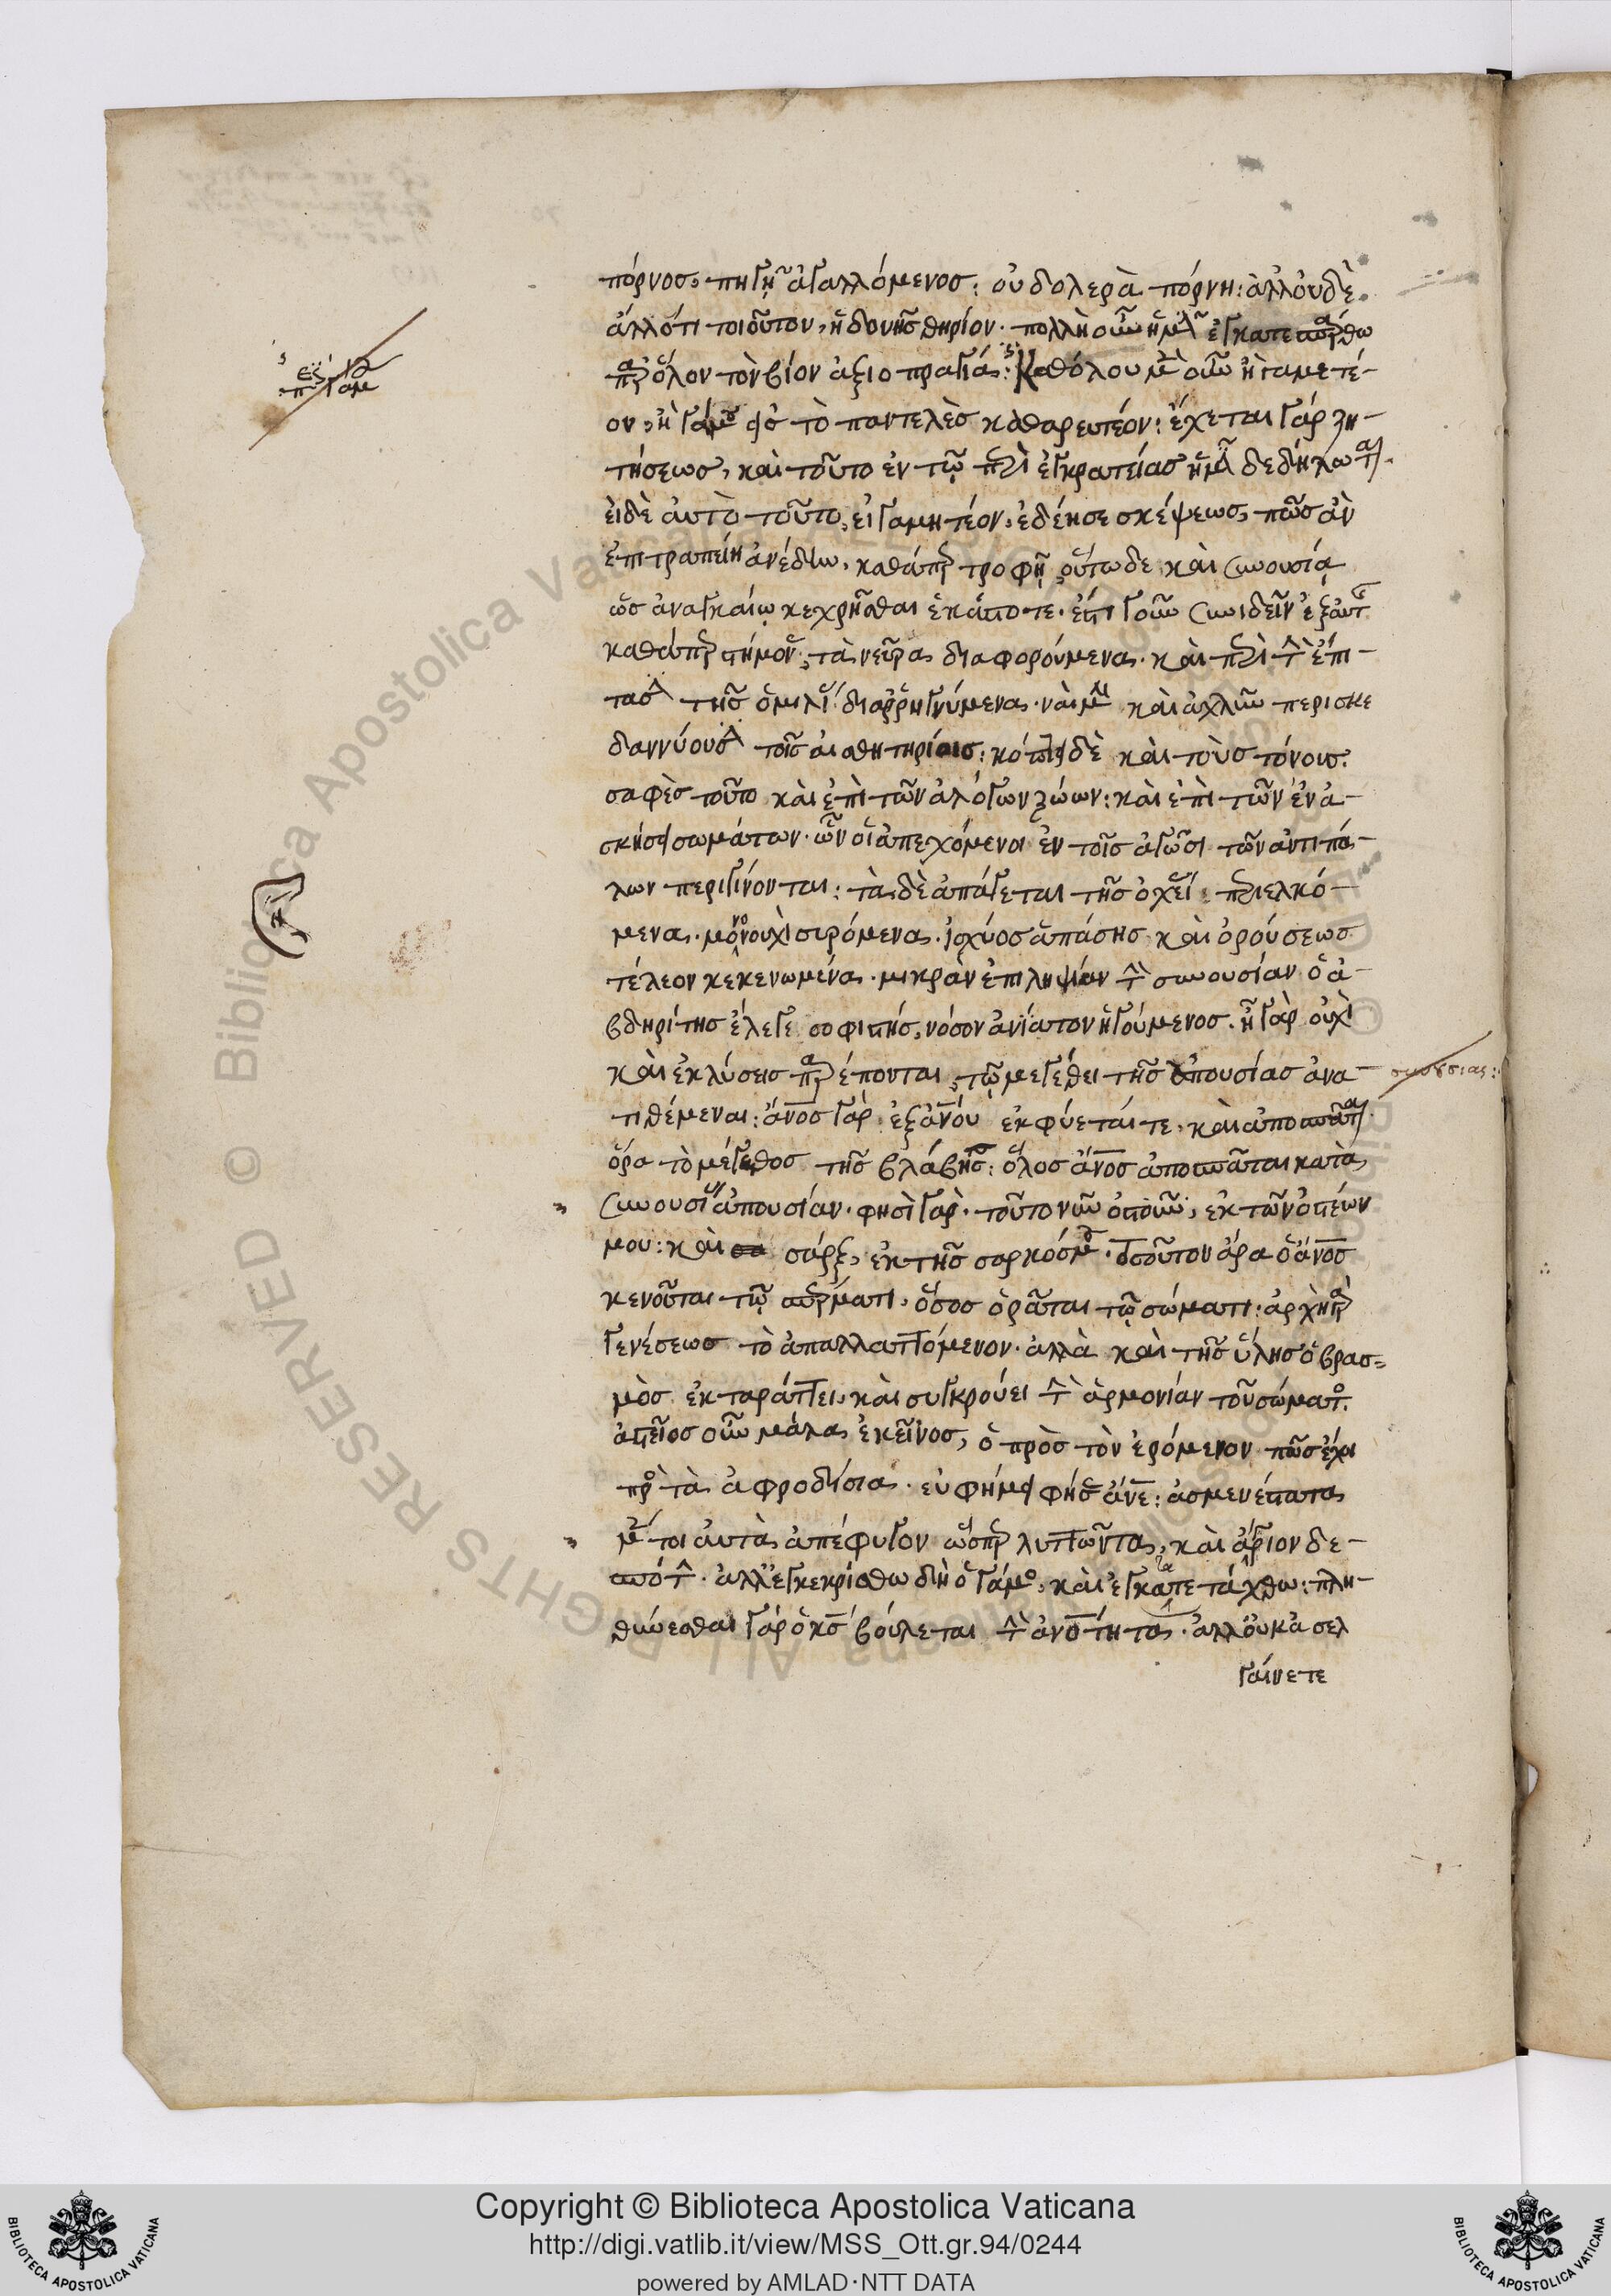 πόρνος, πηγῇ ἀγαλλόμενος: οὐ δολερὰ πόρνη: ἀλλ' οὐδὲ
ἄλλό τι τοιοῦτον, ἡδονῆς θηρίον. πολλὴ οὖν ἡμῖν ἐγκατεσπάρθω
παρ' ὅλον τὸν βίον ἀξιοπραγίας: Καθόλου μὲν οὖν ἢ γαμετέ-
ον, ἢ γάμου εἰς τὸ παντελὲς καθαρευτέον: ἔχεται γάρ ζη-
τήσεως, καὶ τοῦτο ἐν τῷ περὶ ἐγκρατείας ἡμῖν δεδήλωται.
εἰ δὲ αὐτὸ τοῦτο, εἰ γαμητέον, ἐδέησε σκέψεως, πῶς ἂν
ἐπιτραπείη ἀνέδην, καθάπερ τροφῇ οὕτω δὲ καὶ συνουσίᾳ
ὡς ἀναγκαίῳ κεχρῆσθαι ἑκάστοτε. ἔστι γοῦν συνιδεῖν ἐξ αὐτῆς
καθάπερ στήμονας τὰ νεῦρα διαφορούμενα. καὶ περὶ τὴν ἐπί-
τασιν τῆς ὁμιλίας διαρρηγνύμενα. ναὶ μὴν καὶ ἀχλὺν περισκε
δαννύουσιν τοῖς αἰσθητηρίοις: κόπτει δὲ καὶ τοὺς τόνους.
σαφὲς τοῦτο καὶ ἐπὶ τῶν ἀλόγων ζώων: καὶ ἐπὶ τῶν ἐν ἀ-
σκήσει σωμάτων. ὧν οἱ ἀπεχόμενοι ἐν τοῖς ἀγῶσι τῶν ἀντιπά-
λων περιγίνονται: τὰ δὲ ἀπάγεται τῆς ὀχείας περιελκό-
μενα. μόνον οὐχὶ συρόμενα. ἰσχύος ἁπάσης καὶ ὁρούσεως
τέλεον κεκενωμένα. μικρὰν ἐπιληψίαν τὴν συνουσίαν ὁ ἀ-
βδηρίτης ἔλεγε σοφιστής, νόσον ἀνίατον ἡγούμενος. ἢ γὰρ οὐχὶ
καὶ ἐκλύσεις παρέπονται, τῷ μεγέθει τῆς ἀπουσίας ἀνα- συνουσίας:
τιθέμεναι: ἄνος γὰρ ἐξ ἀνου ἐκφύεταί τε, καὶ ἀποσπᾶται.
ὅρα τὸ μέγεθος τῆς βλάβης: ὅλος ἄνος ἀποσπᾶται κατὰ
συνουσίας ἀπουσίαν. φησὶ γάρ. τοῦτο νῦν ὀστοῦν, ἐκ τῶν ὀστέων
μου: καὶ σάρξ, ἐκ τῆς σαρκός μου. τοσοῦτον ἄρα ὁ ἄνος
κενοῦται τῷ σπέρματι, ὅσος ὁρᾶται τῷ σώματι: ἀρχὴ γὰρ
γενέσεως τὸ ἀπαλλαττόμενον. ἀλλὰ καὶ τῆς ὕλης ὁ βρασ-
μὸς ἐκταράττει, καὶ συγκρούει τὴν ἁρμονίαν τοῦ σώματος.
ἀστεῖος οὖν μάλα ἐκεῖνος, ὁ πρὸς τὸν ἐρόμενον πῶς ἔχοι
πρὸς τὰ ἀφροδίσια. εὐφήμει φήσας ἄνε: ἀσμενέστατα
μέντοι αὐτὰ ἀπέφυγον ὥσπερ λυττῶντα, καὶ ἄγριον δε-
σπότην. ἀλλ' ἐγκεκρίσθω δὴ ὁ γάμος, καὶ ἐγκατατετάχθω: πλη-
θύνεσθαι γὰρ ὁ κς βούλεται τὴν ἀνότητα. ἀλλ' οὐκ ἀσελ
γαίνετε